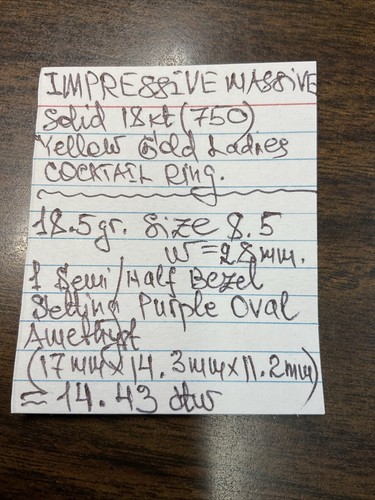 IMPRESSIVE MASSIVE
Solid 18kt (750)
Yellow Gold Ladies
COCKTAIL Ring.
18.5gr. Size 8.5
W=28mm.
1 Semi/Half Bezel
Setting Purple Oval
Amethyst
(17mmx14.3mmx11.2mm)
= 14.43 ctw